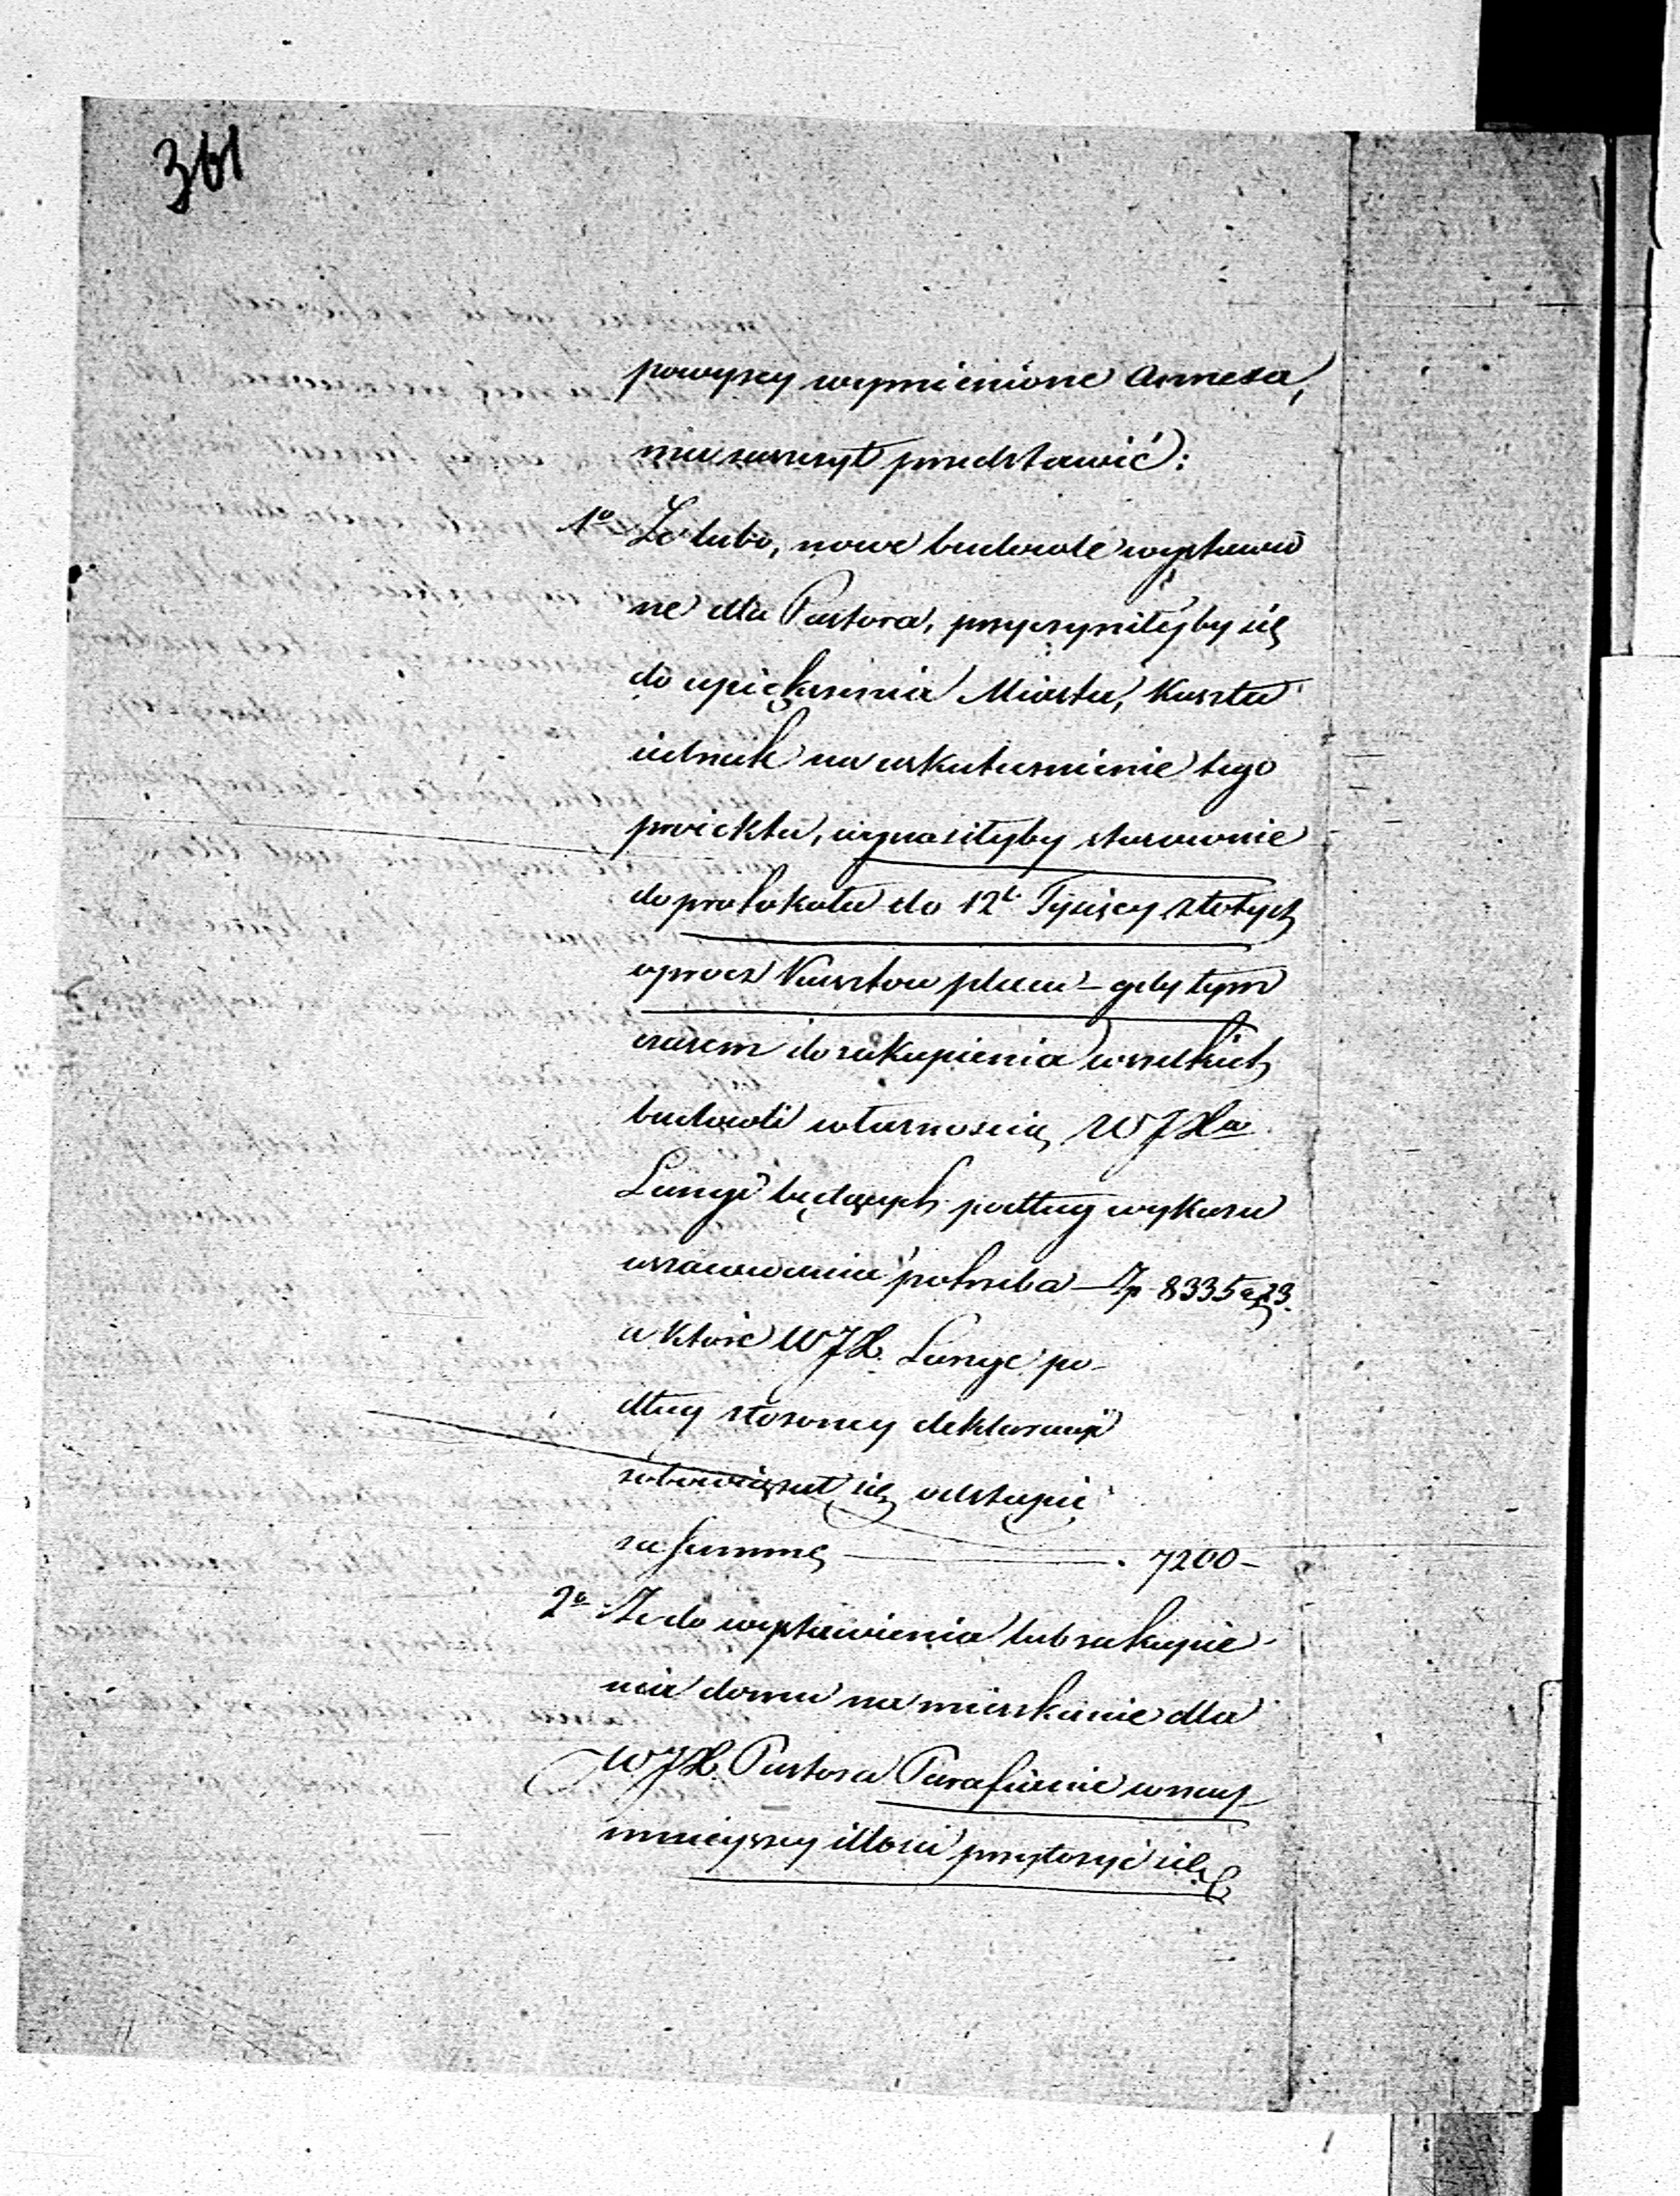 361
powyżey wymienione Annexa,
ma zaszczyt przedstawić:
1o Że lubo, nowe budowle wystawio
ne dla Pastora, przyczyniłyby się
do upiększenia Miasta, Kuszta
iednak na uskutecznienie tego
proiektu, wynosiłyby stosownie
do protokołu do 12tu Tysięcy złotych
oprocz Kusztow placu – gdy tym
czasem do zakupienia wszelkich
budowli własnością WJX
Lange będących podług wykazu
oszacowania potrzeba – Zp 8335 gr 23.
a które WJX. Lange po-
dług złożoney deklaracyi
zobowiązał się odstąpić
za summę — . 7200 –
2o Że do wystawienia lub zakupie-
nia domu na mieszkanie dla
WJX Pastora Parafianie w nay
mnieyszey illości przyłożyć się